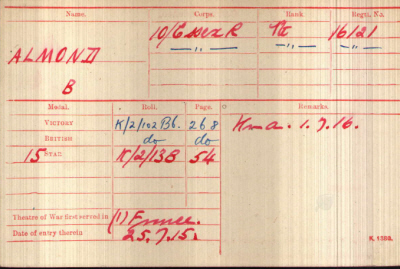 Name. Corps. Rank Regtl. No.
ALMOND 10/Essex R Pte 16121
B —„— —„— —„—
Medal. Roll. Page. Remarks.
VICTORY K/2/102 B6. 268 K in a. 1.7.16.
BRITISH do do
15 STAR K/2/13B 54
Theatre of War first served in (1) France.
Date of entry therein 25.7.15.
K. 1380.